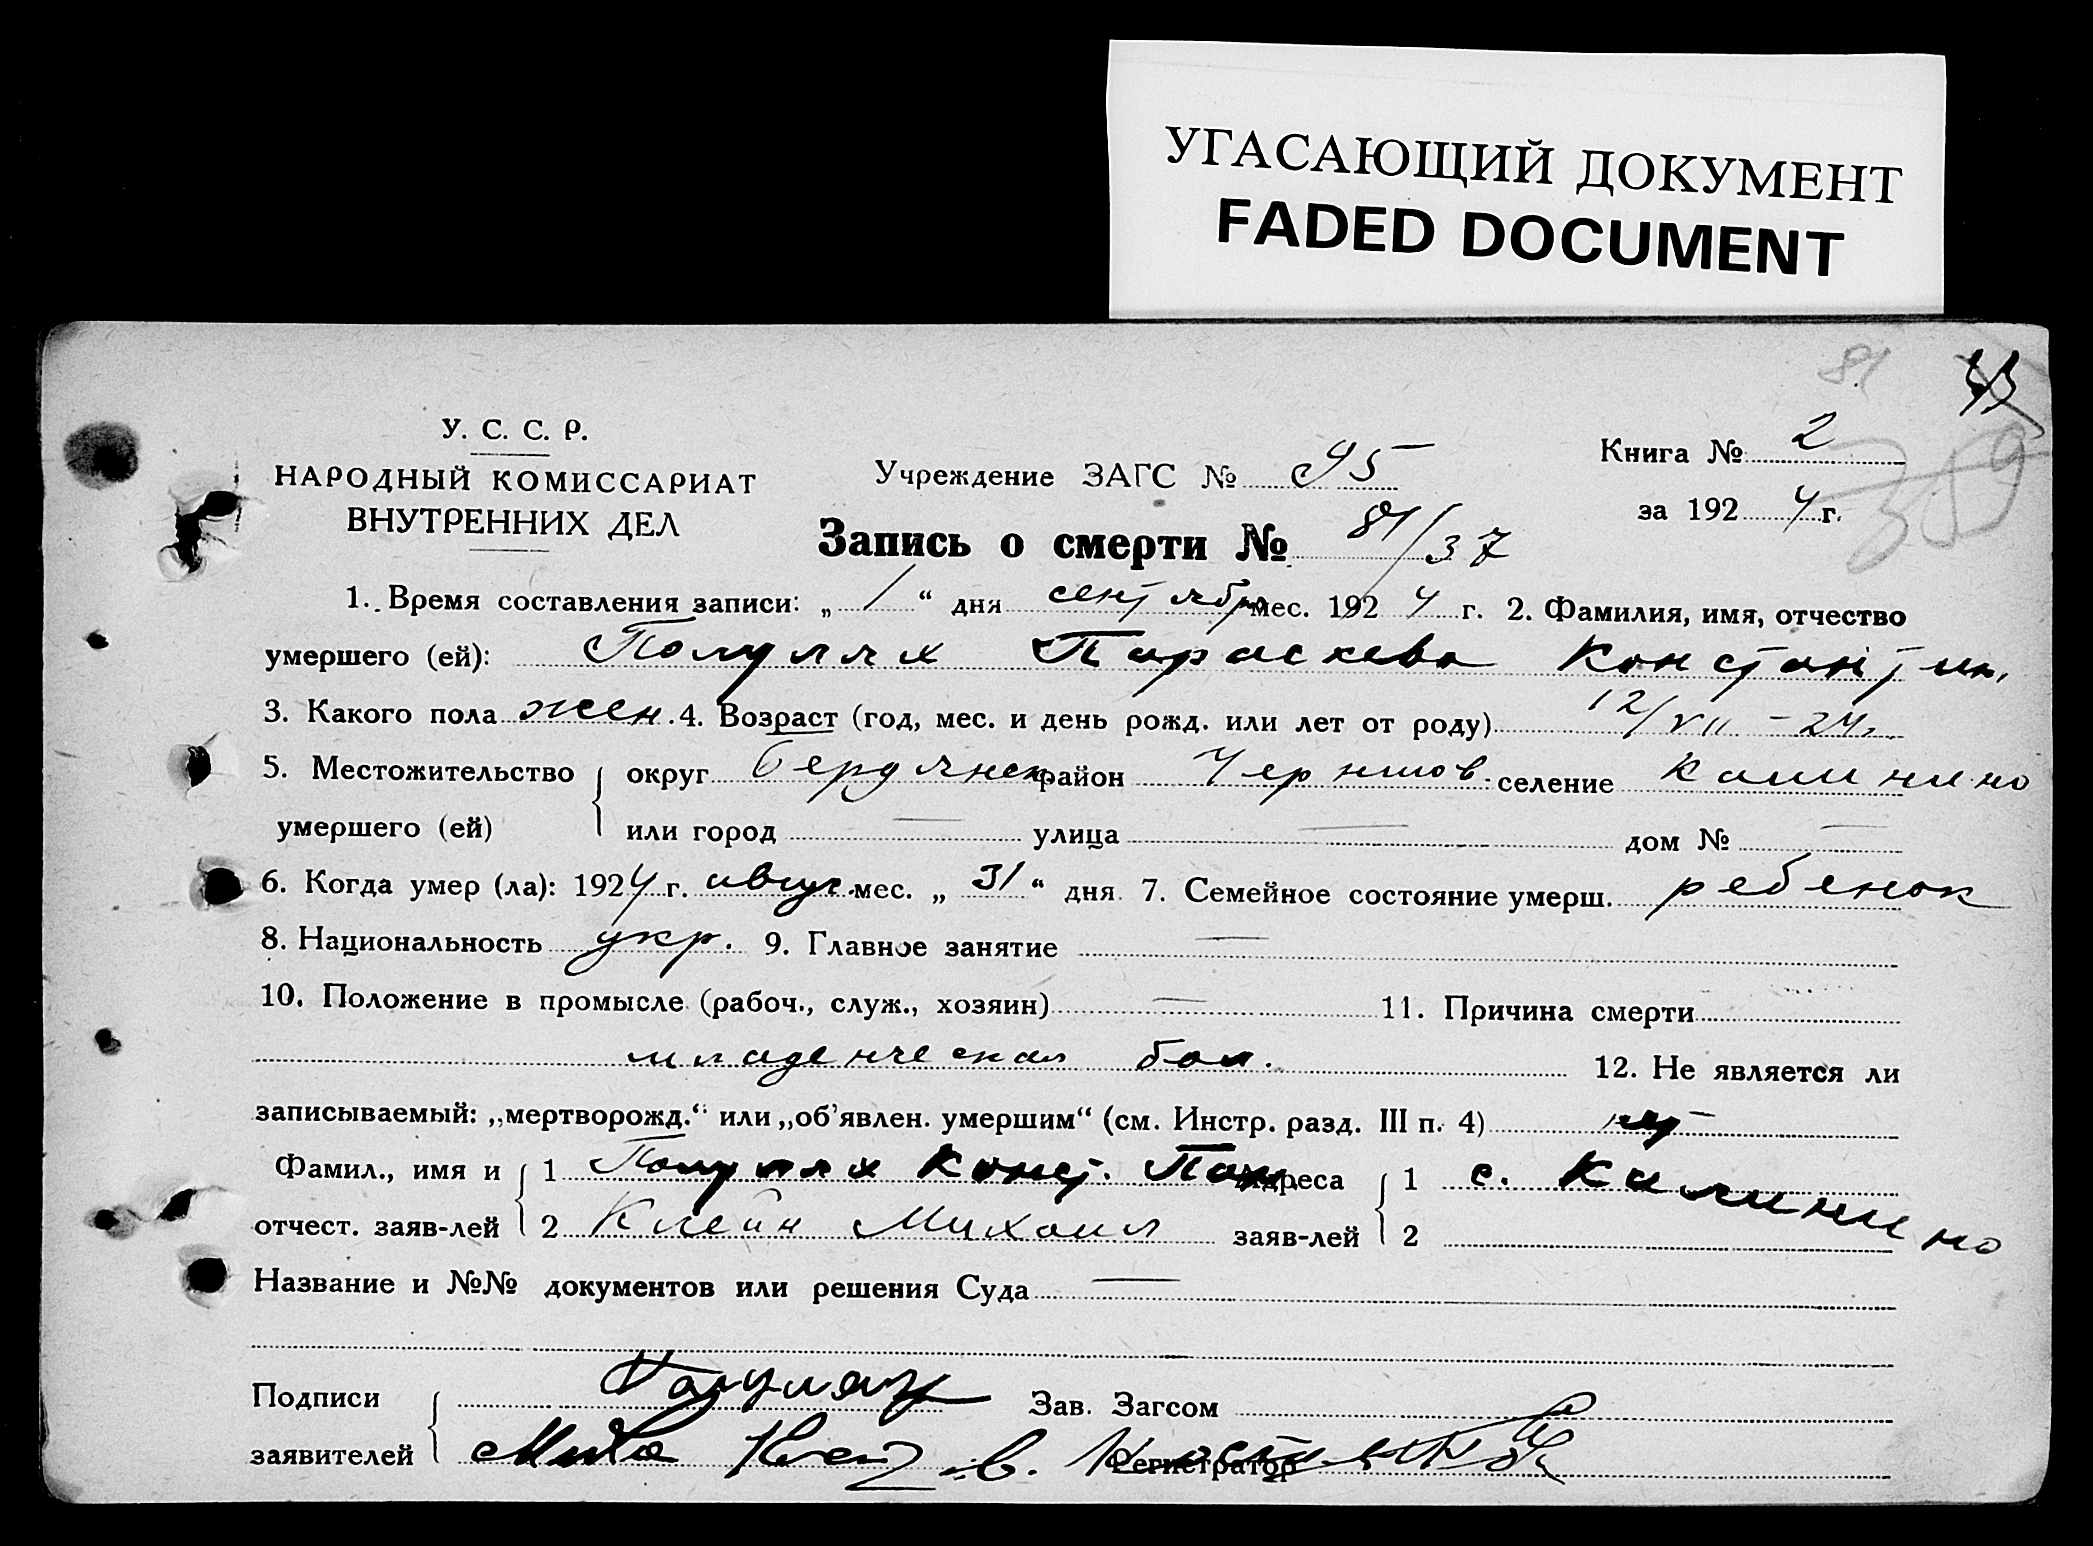 УГАСАЮЩИЙ ДОКУМЕНТ
FADED DOCUMENT
81
У. С. С. Р.
НАРОДНЫЙ КОМИССАРИАТ
ВНУТРЕННИХ ДЕЛ
Учреждение ЗАГС № 95
Книга № 2
за 1924 г.
359
Запись о смерти № 81/37
1. Время составления записи: „ 1 “ дня сентября мес. 1924 г. 2. Фамилия, имя, отчество
умершего (ей): Полулях Параскева Константин.
3. Какого пола жен. 4. Возраст (год, мес. и день рожд. или лет от роду) 12/VII – 24 г.
5. Местожительство округ Бердянск район Чернигов. селение Калинино
умершего (ей) или город — улица — дом № —
6. Когда умер (ла): 1924 г. авгус. мес. „ 31 “ дня 7. Семейное состояние умерш. ребенок
8. Национальность укр. 9. Главное занятие —
10. Положение в промысле (рабоч., служ., хозяин) — 11. Причина смерти
младенческая бол. 12. Не является ли
записываемый: „мертворожд.“ или „об’явлен. умершим“ (см. Инстр. разд. III п. 4) нет
Фамил., имя и 1 Полулях Конст. Адреса 1 с. Калинино
отчест. заяв-лей 2 Клейн Михаил заяв-лей 2
Название и №№ документов или решения Суда —
Подписи Полулях Зав. Загсом
заявителей Регистратор